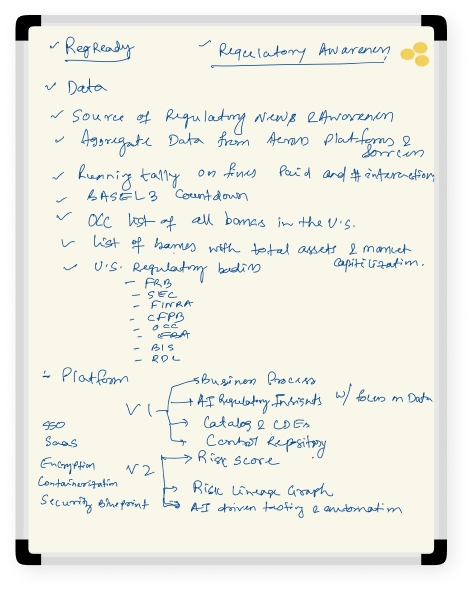 ✓ RegReady ✓ Regulatory Awareness
✓ Data
✓ Source of Regulatory News & Awareness
✓ Aggregate Data from Across Platforms &
Sources
✓ Running tally on fines Paid and #
✓ BASEL 3 Countdown
✓ OCC list of all banks in the U.S.
✓ list of banks with total assets & market
capitilization.
✓ U.S. Regulatory bodies
- FRB
- SEC
- FINRA
- CFPB
- OCC
- BIS
- RDL
- Platform
V1 → Business Process
→ AI Regulatory Insights w/ focus on Data
→ Catalog & CDEs
→ Control Repository
SSO
SaaS
Encryption
Containerization
Security Blueprint
V2 → Risk Score
→ Risk Lineage Graph
→ AI driven testing & automation